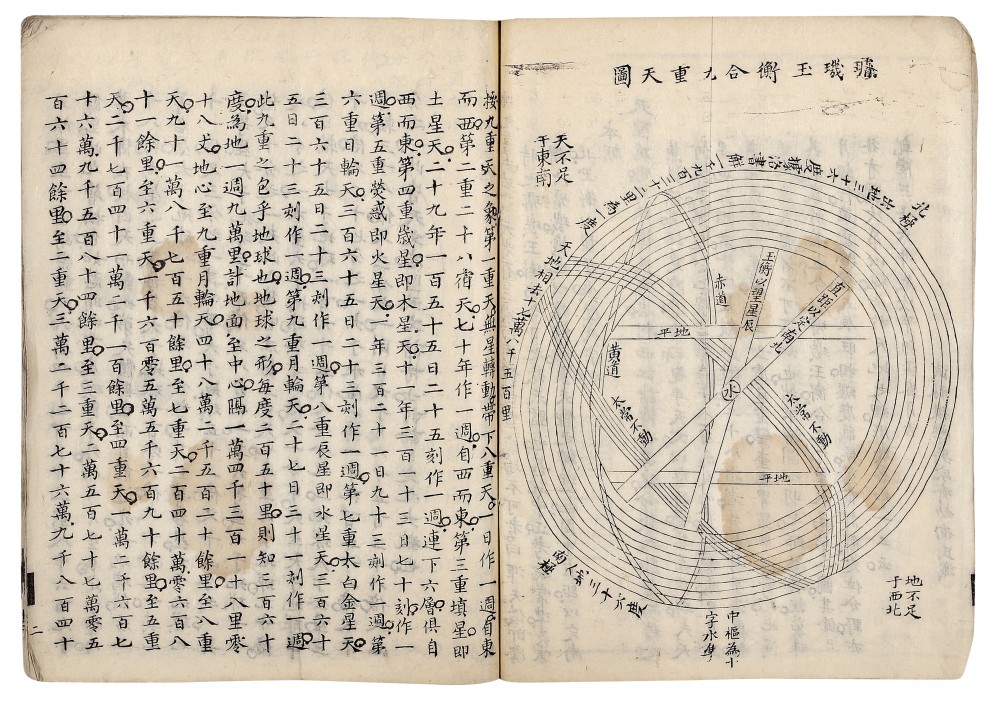 璿璣玉衡合九重天圖
天不足
于東南
北極
出地三十六度據洛書解一千九百三十二里為度
天地相去十七萬八千五百里
玉衡以望星辰
直距以定南北
赤道
地平
黃道
水
太常不動
太常不動
地平
南極
入地三十六度
中樞為十
地不足
于西北
按九重天之象第一重天無星轉動帶下八重天一日作一週自東
而西第二重二十八宿天七十年作一週自西而東第三重填星即
土星天二十九年一百五十五日二十五刻作一週連下六層俱自
西而東第四重歲星即木星天十一年三百一十三日七十刻作一
週第五重熒惑即火星天一年三百二十一日九十三刻作一週第
六重日輪天三百六十五日二十三刻作一週第七重太白金星天
三百六十五日二十三刻作一週第八重辰星即水星天三百六十
五日二十三刻作一週第九重月輪天二十七日三十一刻作一週
此九重之包乎地球也地球之形每度二百五十里則知三百六十
度為地一週九萬里計地面至中心隔一萬四千三百一十八里零
十八丈地心至九重月輪天四十八萬二千五百二十餘里至八重
天九十一萬八千七百五十餘里至七重天二百四十萬零六百八
十一餘里至六重天一千六百零五萬五千六百九十餘里至五重
天二千七百四十一萬二千一百餘里至四重天一萬二千六百七
十六萬九千五百八十四餘里至三重天二萬五百七十七萬零五
百六十四餘里至二重天三萬二千二百七十六萬九千八百四十
二